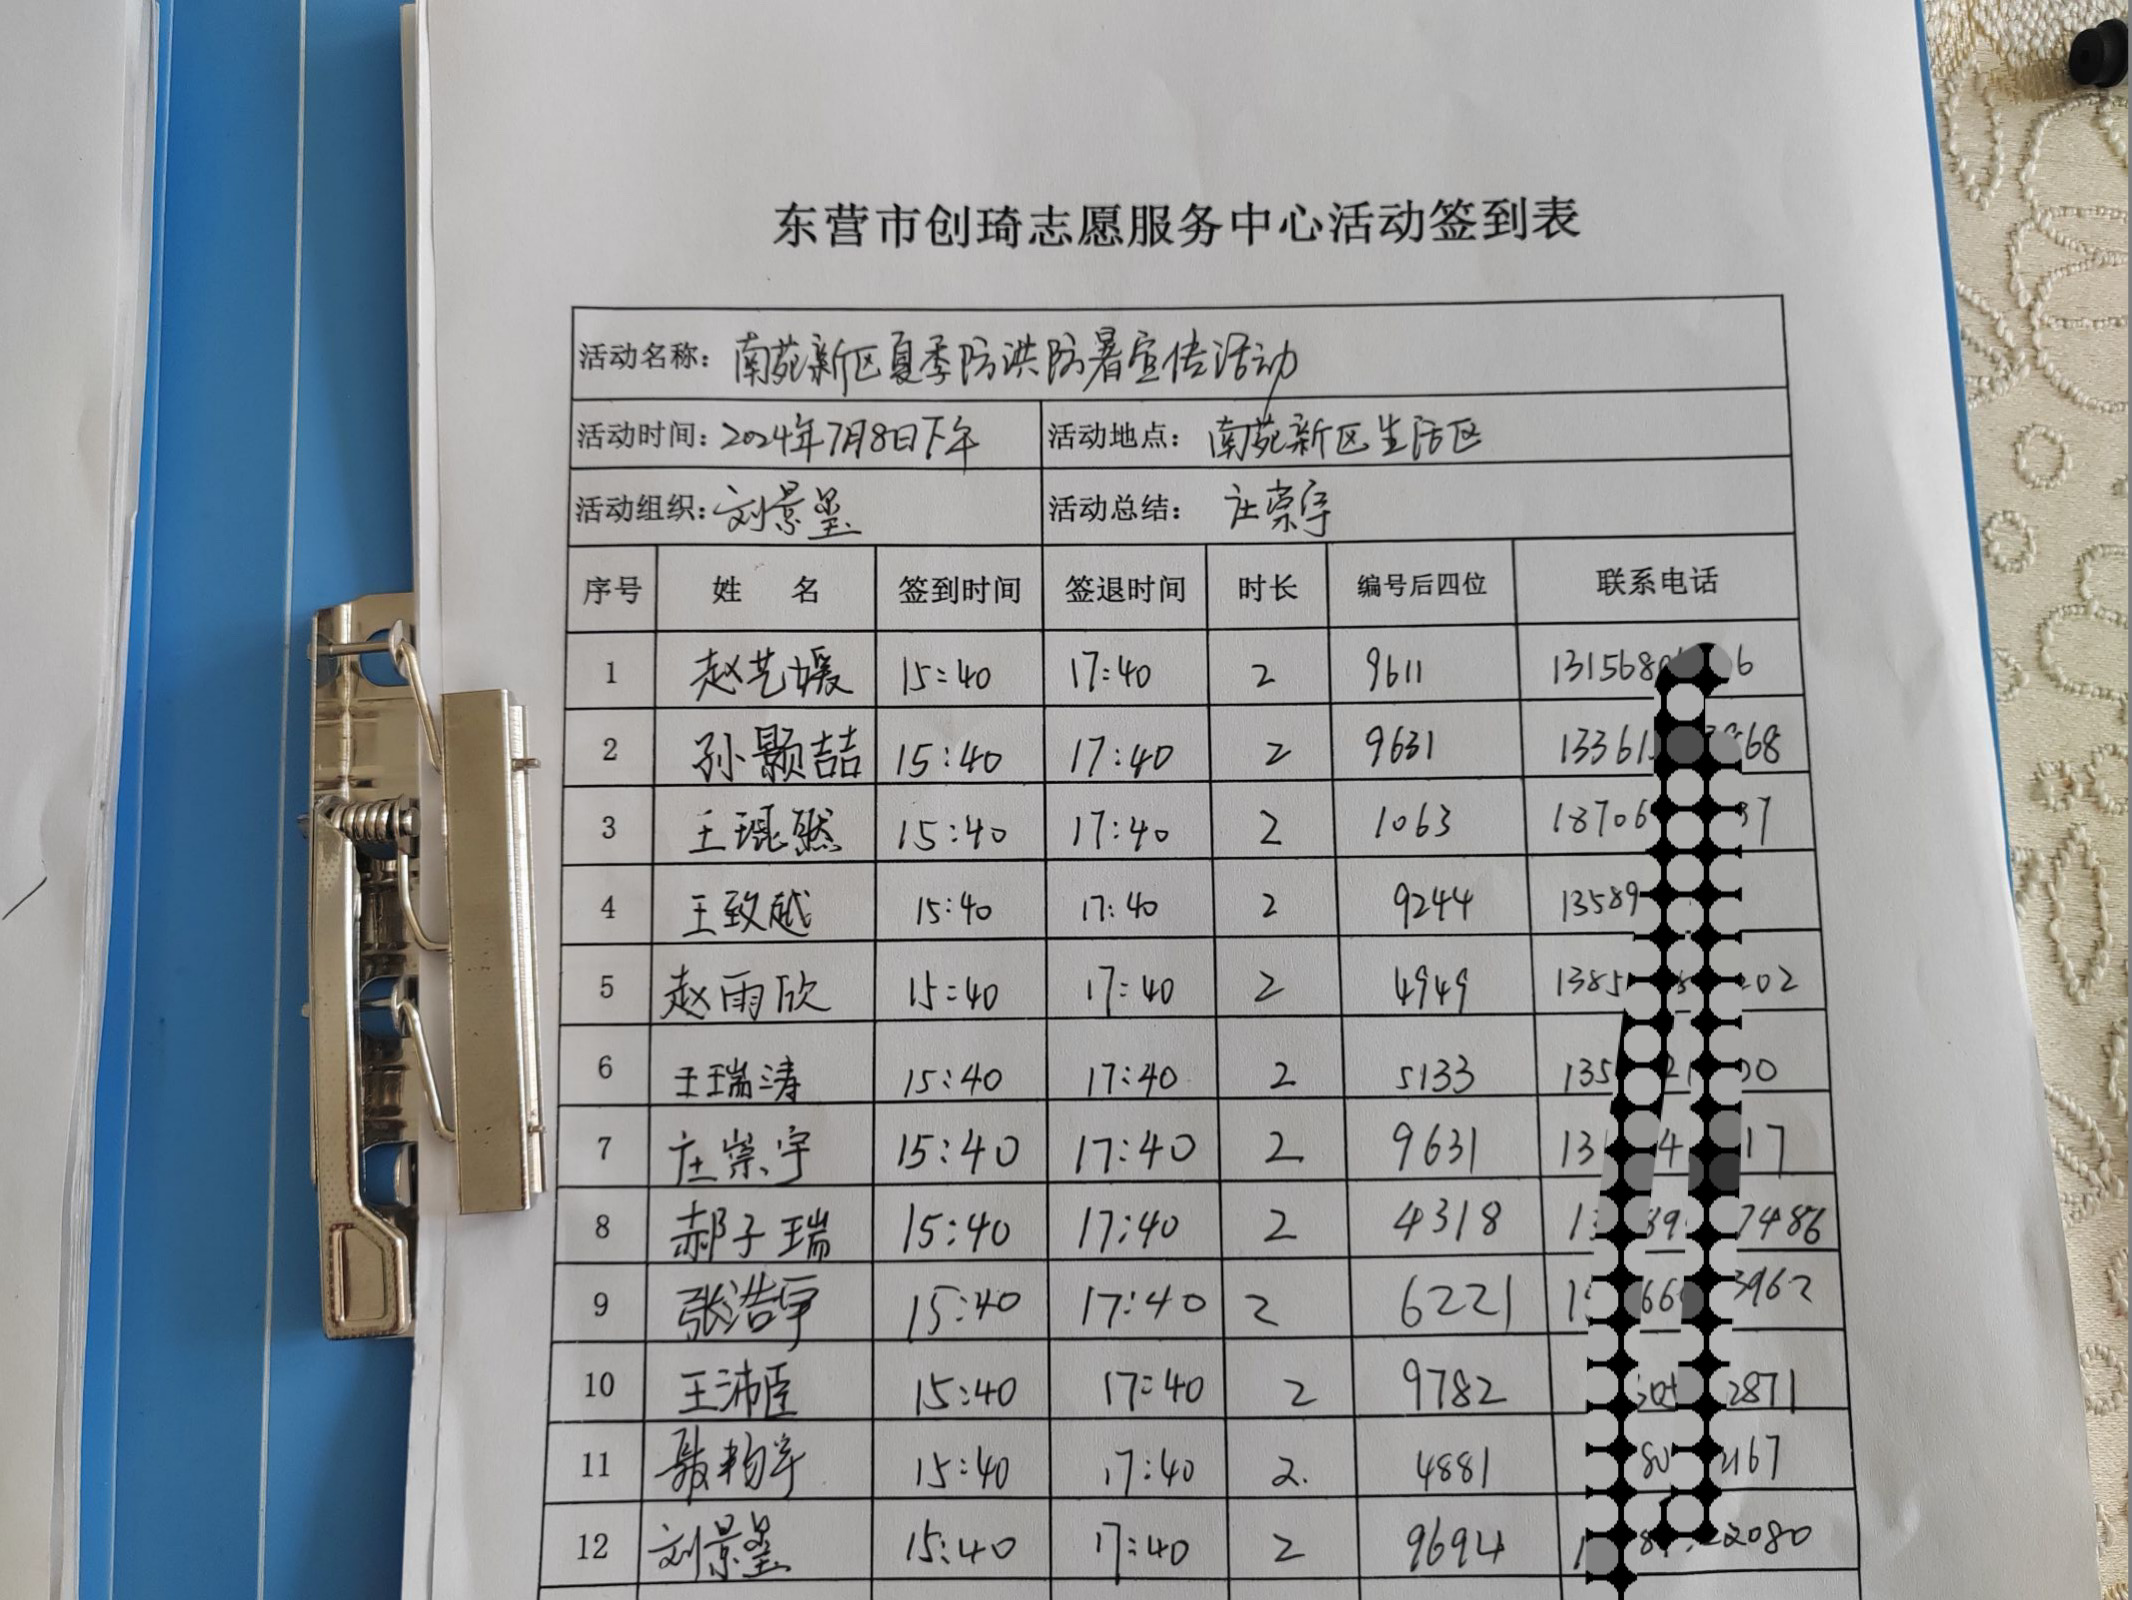 东营市创琦志愿服务中心活动签到表
活动名称：南苑新区夏季防洪防暑宣传活动
活动时间：2024年7月8日下午 活动地点：南苑新区生活区
活动组织：刘景玺 活动总结：庄崇宇
序号 姓 名 签到时间 签退时间 时长 编号后四位 联系电话
1 赵艺媛 15:40 17:40 2 9611 1315680 6
2 孙颢喆 15:40 17:40 2 9631 13361 68
3 王琨然 15:40 17:40 2 1063 18706 37
4 王致越 15:40 17:40 2 9244 13589
5 赵雨欣 15:40 17:40 2 4949 1385 202
6 王瑞涛 15:40 17:40 2 5133 135 00
7 庄崇宇 15:40 17:40 2 9631 131 4 17
8 郝子瑞 15:40 17:40 2 4318 1 39 7486
9 张浩宇 15:40 17:40 2 6221 1 66 3962
10 王沛臣 15:40 17:40 2 9782 505 2871
11 15:40 17:40 2. 4881 80 2167
12 刘景玺 15:40 17:40 2 9694 1 8 22080